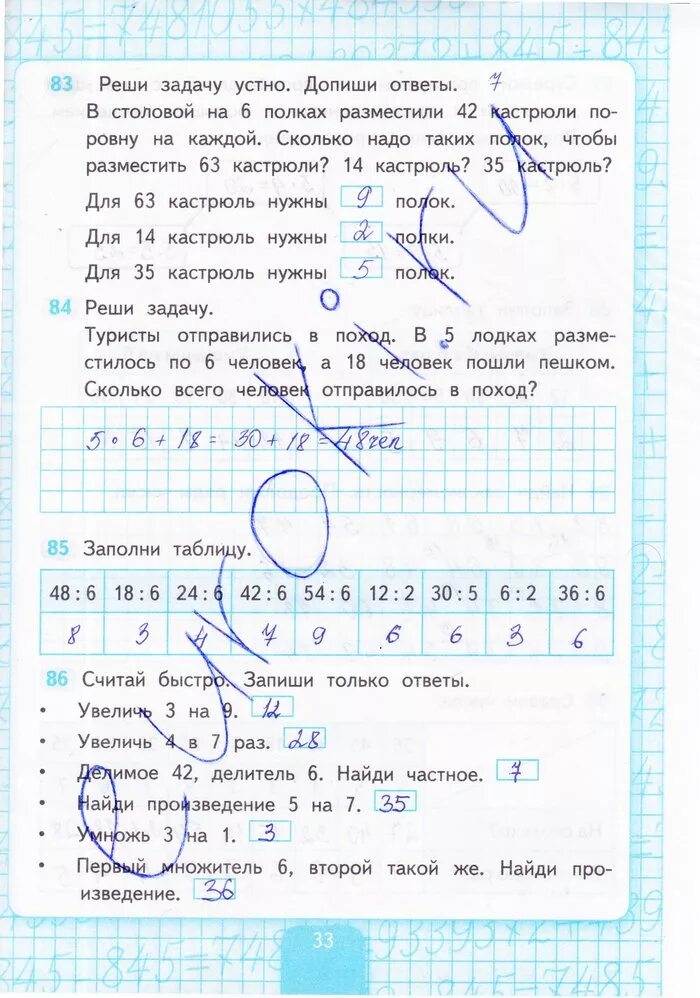 83 Реши задачу устно. Допиши ответы. 7
В столовой на 6 полках разместили 42 кастрюли по-
ровну на каждой. Сколько надо таких полок, чтобы
разместить 63 кастрюли? 14 кастрюль? 35 кастрюль?
Для 63 кастрюль нужны 9 полок.
Для 14 кастрюль нужны 2 полки.
Для 35 кастрюль нужны 5 полок.
84 Реши задачу.
Туристы отправились в поход. В 5 лодках разме-
стилось по 6 человек, а 18 человек пошли пешком.
Сколько всего человек отправилось в поход?
5 · 6 + 18 = 30 + 18 = 48 чел
85 Заполни таблицу.
48 : 6 18 : 6 24 : 6 42 : 6 54 : 6 12 : 2 30 : 5 6 : 2 36 : 6
8 3 4 7 9 6 6 3 6
86 Считай быстро. Запиши только ответы.
• Увеличь 3 на 9. 12
• Увеличь 4 в 7 раз. 28
• Делимое 42, делитель 6. Найди частное. 7
• Найди произведение 5 на 7. 35
• Умножь 3 на 1. 3
• Первый множитель 6, второй такой же. Найди про-
изведение. 36
33